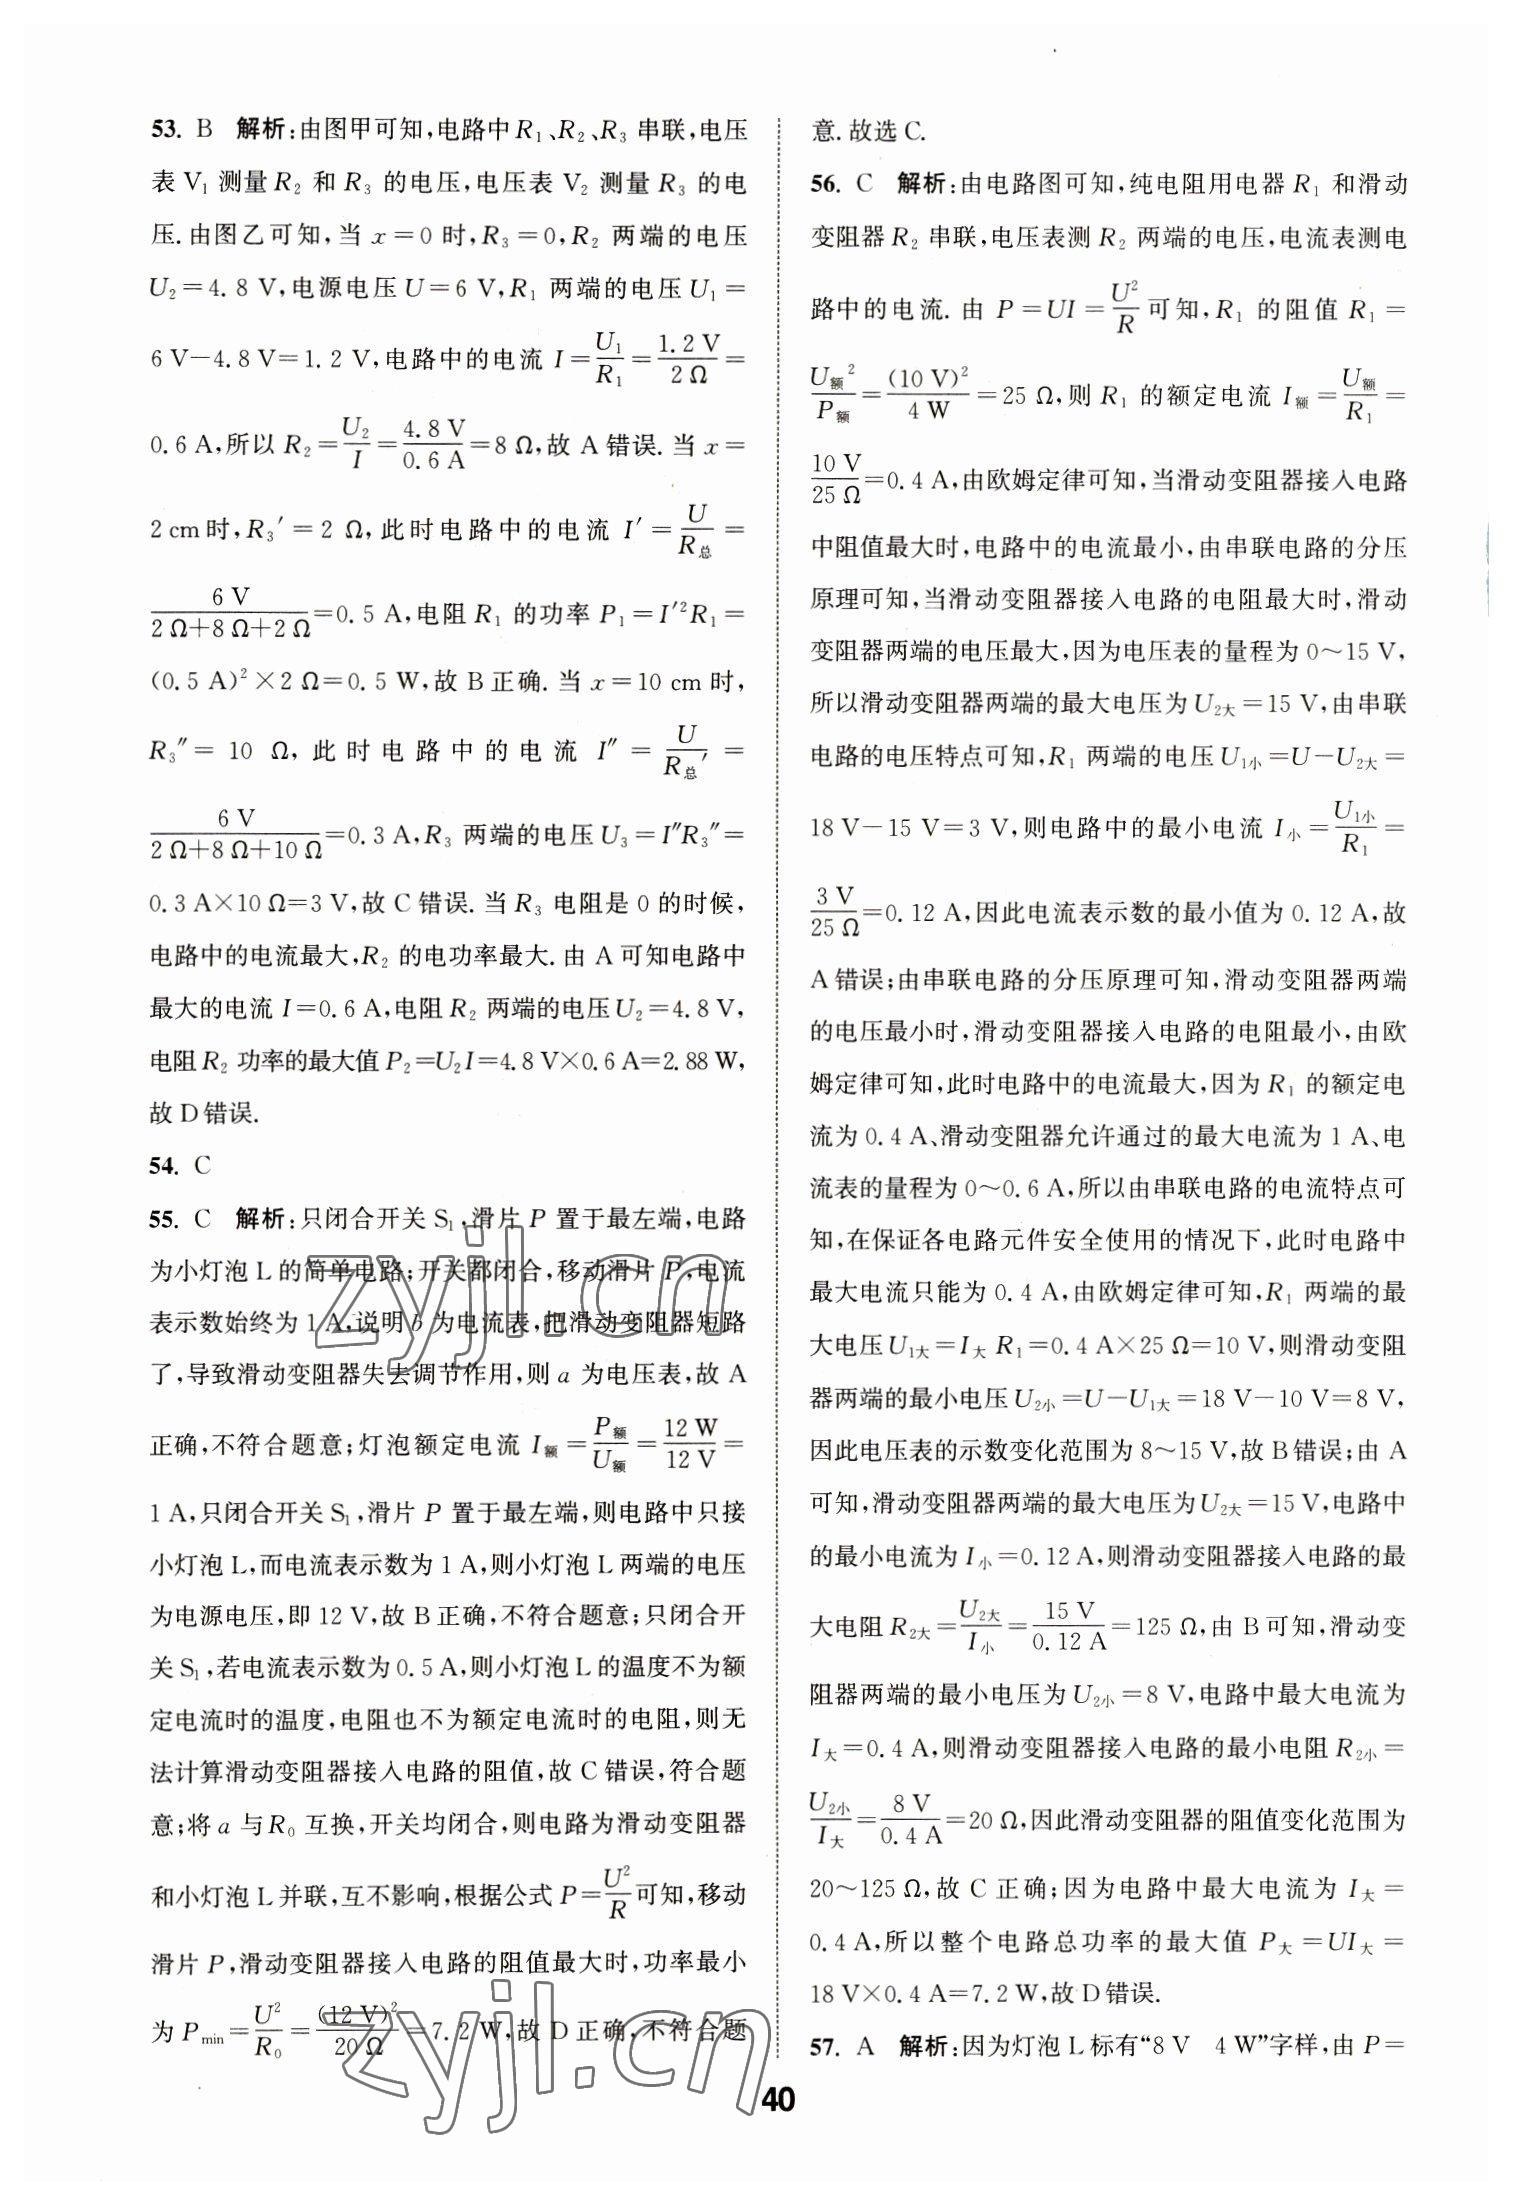 53. B 解析:由图甲可知,电路中R₁、R₂、R₃串联,电压
表V₁测量R₂和R₃的电压,电压表V₂测量R₃的电
压.由图乙可知,当x=0时,R₃=0,R₂两端的电压
U₂=4.8 V,电源电压U=6 V,R₁两端的电压U₁=
6 V-4.8 V=1.2 V,电路中的电流I=U₁/R₁=1.2 V/2 Ω=
0.6 A,所以R₂=U₂/I=4.8 V/0.6 A=8 Ω,故A错误.当x=
2 cm时,R₃′=2 Ω,此时电路中的电流I′=U/R总=
6 V/(2 Ω+8 Ω+2 Ω)=0.5 A,电阻R₁的功率P₁=I′²R₁=
(0.5 A)²×2 Ω=0.5 W,故B正确.当x=10 cm时,
R₃″=10 Ω,此时电路中的电流I″=U/R总′=
6 V/(2 Ω+8 Ω+10 Ω)=0.3 A,R₃两端的电压U₃=I″R₃″=
0.3 A×10 Ω=3 V,故C错误.当R₃电阻是0的时候,
电路中的电流最大,R₂的电功率最大.由A可知电路中
最大的电流I=0.6 A,电阻R₂两端的电压U₂=4.8 V,
电阻R₂功率的最大值P₂=U₂I=4.8 V×0.6 A=2.88 W,
故D错误.
54. C
55. C 解析:只闭合开关S₁,滑片P置于最左端,电路
为小灯泡L的简单电路;开关都闭合,移动滑片P,电流
表示数始终为1 A,说明b为电流表,把滑动变阻器短路
了,导致滑动变阻器失去调节作用,则a为电压表,故A
正确,不符合题意;灯泡额定电流I额=P额/U额=12 W/12 V=
1 A,只闭合开关S₁,滑片P置于最左端,则电路中只接
小灯泡L,而电流表示数为1 A,则小灯泡L两端的电压
为电源电压,即12 V,故B正确,不符合题意;只闭合开
关S₁,若电流表示数为0.5 A,则小灯泡L的温度不为额
定电流时的温度,电阻也不为额定电流时的电阻,则无
法计算滑动变阻器接入电路的阻值,故C错误,符合题
意;将a与R₀互换,开关均闭合,则电路为滑动变阻器
和小灯泡L并联,互不影响,根据公式P=U²/R可知,移动
滑片P,滑动变阻器接入电路的阻值最大时,功率最小
为Pmin=U²/R₀=(12 V)²/20 Ω=7.2 W,故D正确,不符合题
意.故选C.
56. C 解析:由电路图可知,纯电阻用电器R₁和滑动
变阻器R₂串联,电压表测R₂两端的电压,电流表测电
路中的电流.由P=UI=U²/R可知,R₁的阻值R₁=
U额²/P额=(10 V)²/4 W=25 Ω,则R₁的额定电流I额=U额/R₁=
10 V/25 Ω=0.4 A,由欧姆定律可知,当滑动变阻器接入电路
中阻值最大时,电路中的电流最小,由串联电路的分压
原理可知,当滑动变阻器接入电路的电阻最大时,滑动
变阻器两端的电压最大,因为电压表的量程为0~15 V,
所以滑动变阻器两端的最大电压为U₂大=15 V,由串联
电路的电压特点可知,R₁两端的电压U₁小=U-U₂大=
18 V-15 V=3 V,则电路中的最小电流I小=U₁小/R₁=
3 V/25 Ω=0.12 A,因此电流表示数的最小值为0.12 A,故
A错误;由串联电路的分压原理可知,滑动变阻器两端
的电压最小时,滑动变阻器接入电路的电阻最小,由欧
姆定律可知,此时电路中的电流最大,因为R₁的额定电
流为0.4 A、滑动变阻器允许通过的最大电流为1 A、电
流表的量程为0~0.6 A,所以由串联电路的电流特点可
知,在保证各电路元件安全使用的情况下,此时电路中
最大电流只能为0.4 A,由欧姆定律可知,R₁两端的最
大电压U₁大=I大R₁=0.4 A×25 Ω=10 V,则滑动变阻
器两端的最小电压U₂小=U-U₁大=18 V-10 V=8 V,
因此电压表的示数变化范围为8~15 V,故B错误;由A
可知,滑动变阻器两端的最大电压为U₂大=15 V,电路中
的最小电流为I小=0.12 A,则滑动变阻器接入电路的最
大电阻R₂大=U₂大/I小=15 V/0.12 A=125 Ω,由B可知,滑动变
阻器两端的最小电压为U₂小=8 V,电路中最大电流为
I大=0.4 A,则滑动变阻器接入电路的最小电阻R₂小=
U₂小/I大=8 V/0.4 A=20 Ω,因此滑动变阻器的阻值变化范围为
20~125 Ω,故C正确;因为电路中最大电流为I大=
0.4 A,所以整个电路总功率的最大值P大=UI大=
18 V×0.4 A=7.2 W,故D错误.
57. A 解析:因为灯泡L标有“8 V 4 W”字样,由P=
40
zyjl.cn
zyjl.cn